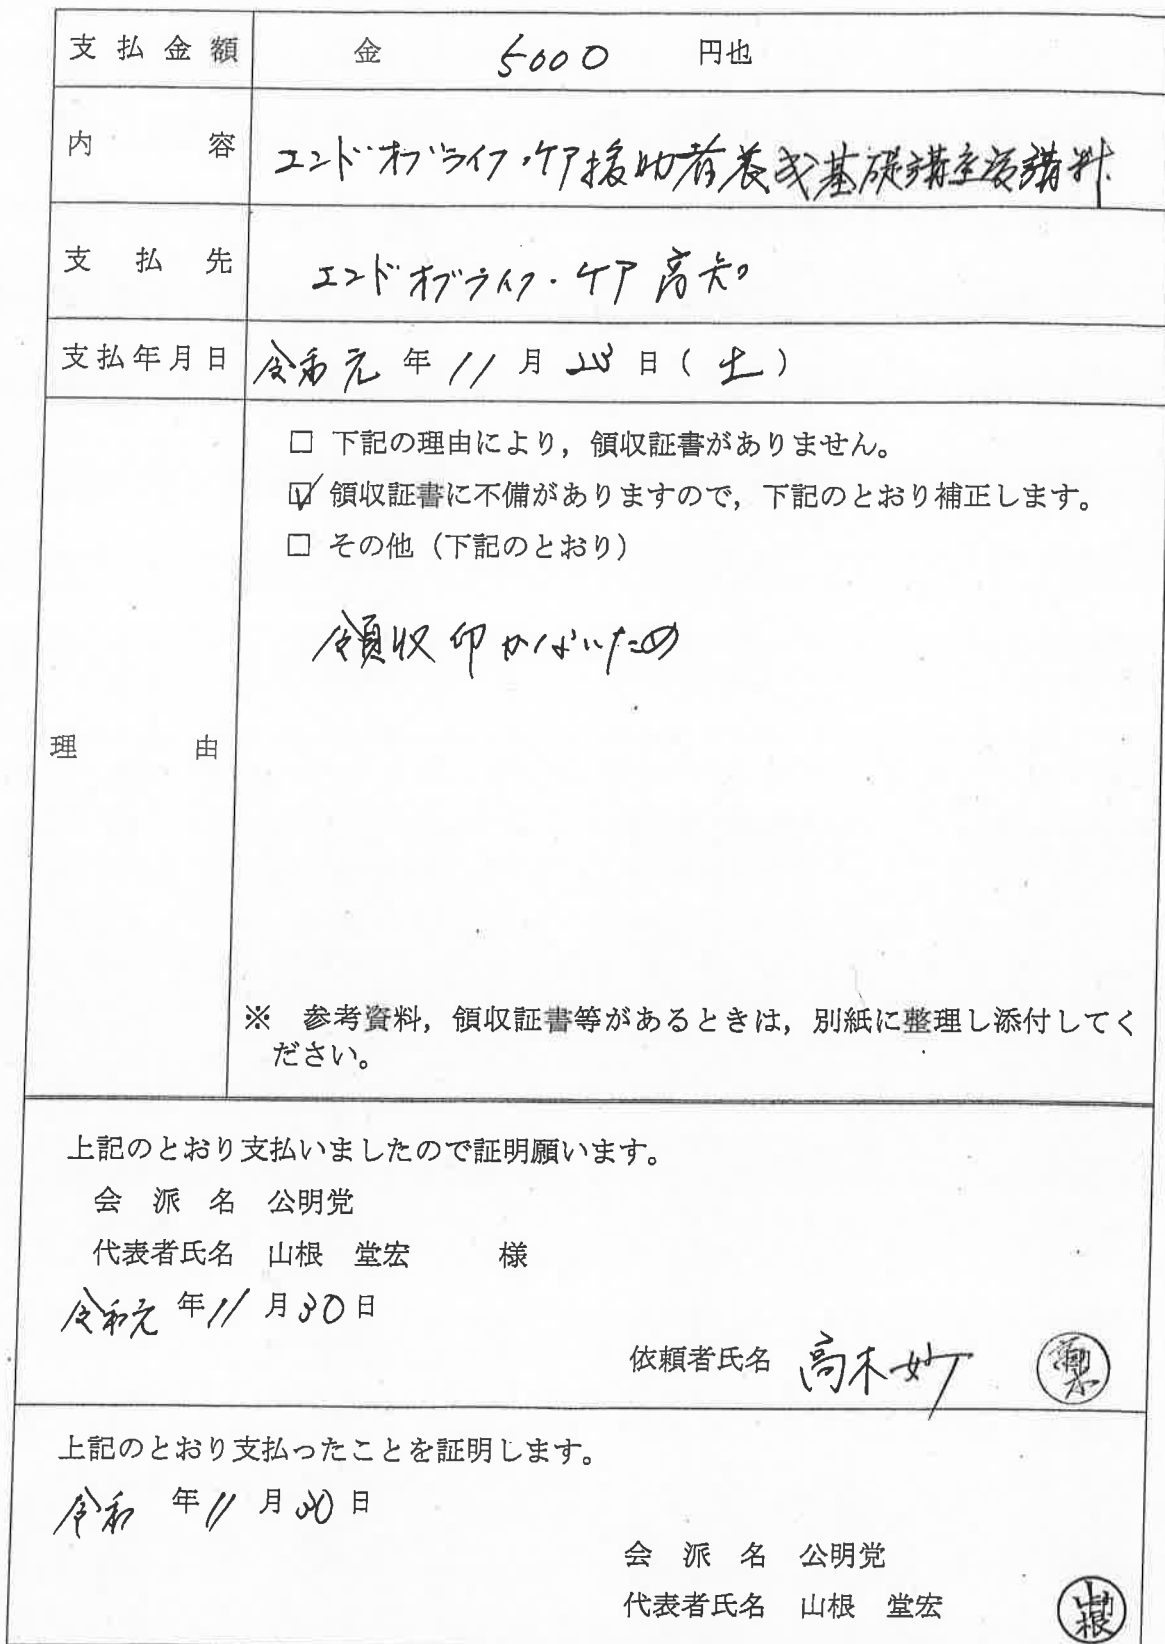 支払金額 金 5000 円也
内容 エンドオブライフ・ケア援助者養成基礎講座受講料
支払先 エンドオブライフ・ケア高知
支払年月日 令和元年11月23日(土)
□ 下記の理由により，領収証書がありません。
☑ 領収証書に不備がありますので，下記のとおり補正します。
□ その他（下記のとおり）
領収印がないため
理由
※ 参考資料，領収証書等があるときは，別紙に整理し添付してく
ださい。
上記のとおり支払いましたので証明願います。
会派名 公明党
代表者氏名 山根 堂宏 様
令和元年11月30日
依頼者氏名 高木妙
上記のとおり支払ったことを証明します。
令和 年11月30日
会派名 公明党
代表者氏名 山根 堂宏
山根